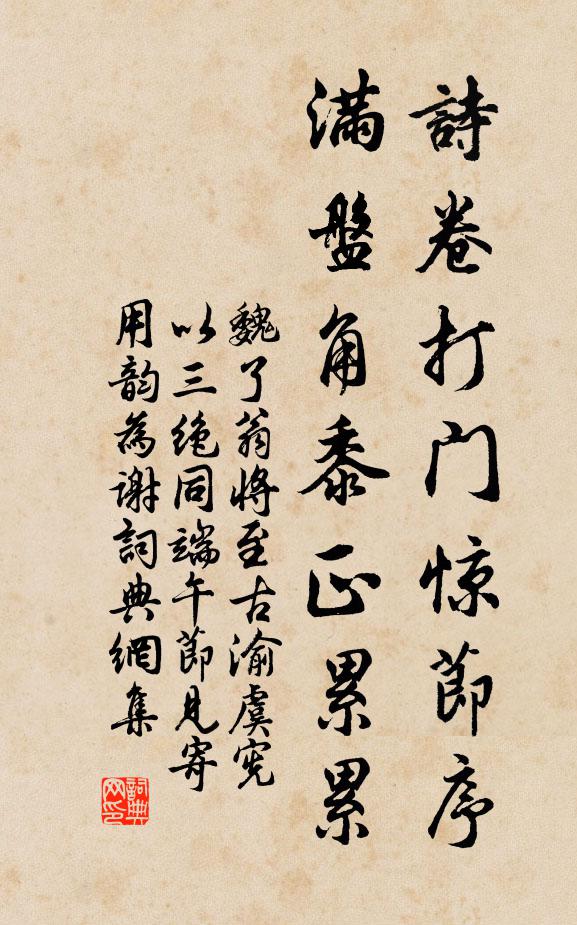 詩卷打门惊節序
满盤角黍正累累
魏了翁将至古渝虞宪
以三绝同端午節見寄
用韵為谢詞典網集
詞典网印